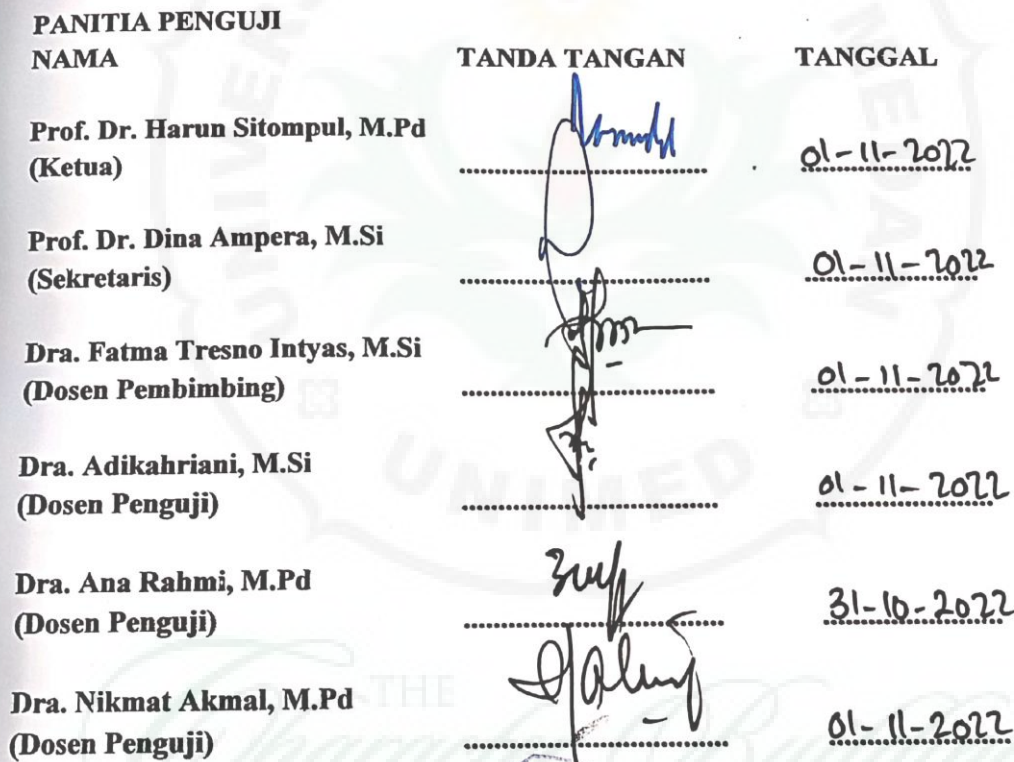 PANITIA PENGUJI
NAMA TANDA TANGAN TANGGAL
Prof. Dr. Harun Sitompul, M.Pd
(Ketua) 01-11-2022
Prof. Dr. Dina Ampera, M.Si
(Sekretaris) 01-11-2022
Dra. Fatma Tresno Intyas, M.Si
(Dosen Pembimbing) 01-11-2022
Dra. Adikahriani, M.Si
(Dosen Penguji) 01-11-2022
Dra. Ana Rahmi, M.Pd
(Dosen Penguji) 31-10-2022
Dra. Nikmat Akmal, M.Pd
(Dosen Penguji) 01-11-2022
UNIMED
THE